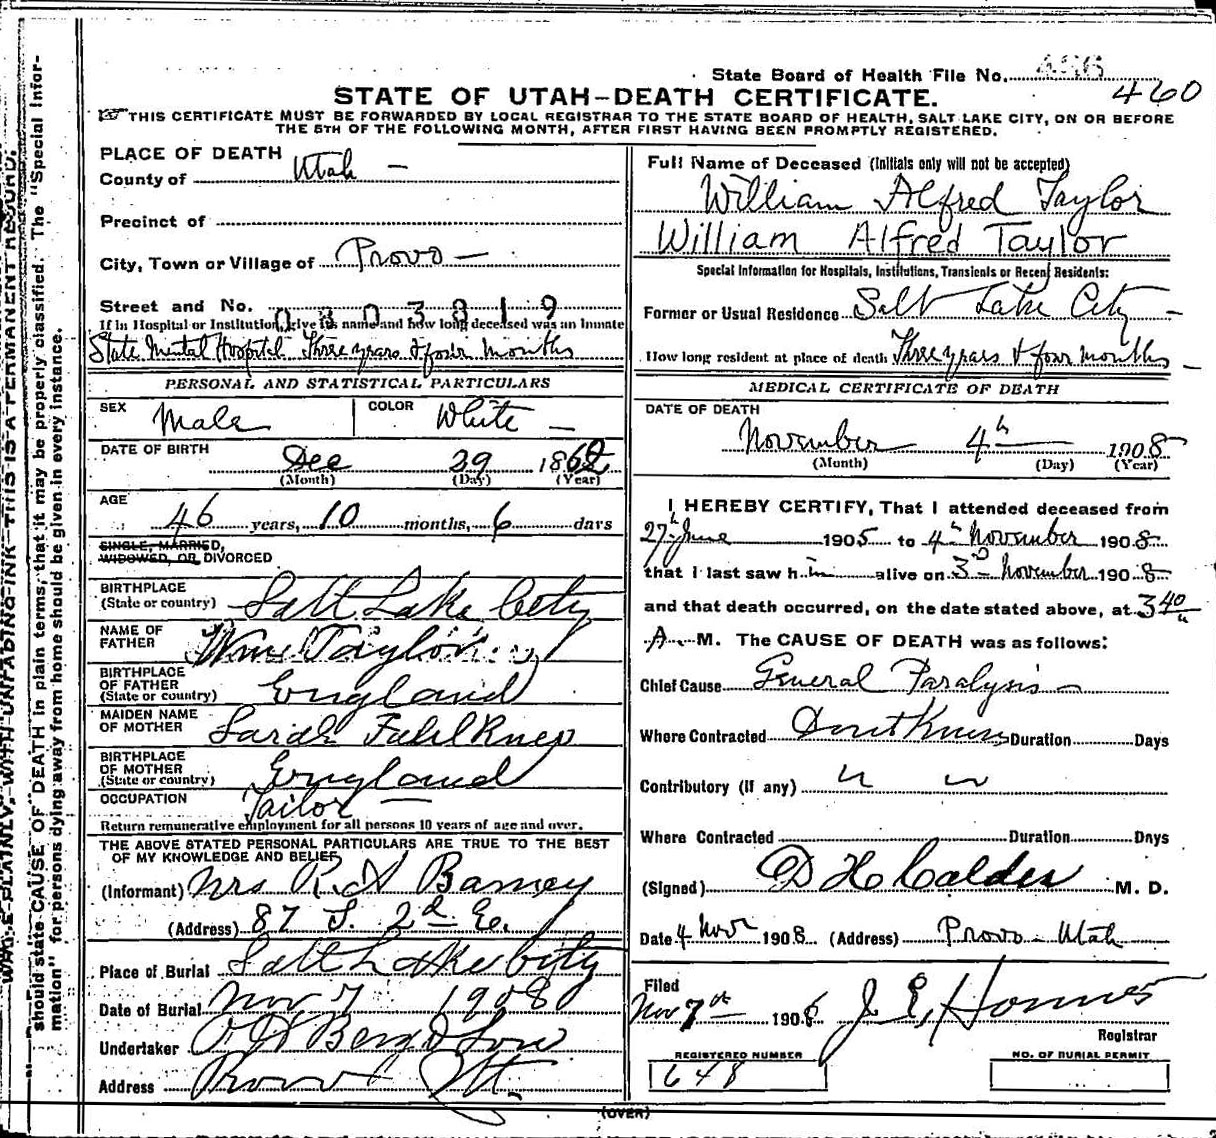 State Board of Health File No.
460
STATE OF UTAH—DEATH CERTIFICATE.
THIS CERTIFICATE MUST BE FORWARDED BY LOCAL REGISTRAR TO THE STATE BOARD OF HEALTH, SALT LAKE CITY, ON OR BEFORE
THE 5TH OF THE FOLLOWING MONTH, AFTER FIRST HAVING BEEN PROMPTLY REGISTERED.
PLACE OF DEATH
County of Utah —
Precinct of
City, Town or Village of Provo —
Street and No.
0303819
If in Hospital or Institution, give its name and how long deceased was an Inmate
State Mental Hospital Three years & four months
PERSONAL AND STATISTICAL PARTICULARS
SEX Male COLOR White —
DATE OF BIRTH
Dec 29 186
(Month) (Day) (Year)
AGE
46 years, 10 months, 6 days
SINGLE, MARRIED,
WIDOWED, OR DIVORCED
BIRTHPLACE
(State or country) Salt Lake City
NAME OF
FATHER Wm Taylor
BIRTHPLACE
OF FATHER
(State or country) England
MAIDEN NAME
OF MOTHER Sarah
BIRTHPLACE
OF MOTHER
(State or country) England
OCCUPATION Tailor —
Return remunerative employment for all persons 10 years of age and over.
THE ABOVE STATED PERSONAL PARTICULARS ARE TRUE TO THE BEST
OF MY KNOWLEDGE AND BELIEF
(Informant) Mrs R. A Barney
(Address) 87 S. 2d E.
Place of Burial Salt Lake City
Date of Burial Nov 7 1908
Undertaker O H Berg & Son
Address Provo Ut.
Full Name of Deceased (Initials only will not be accepted)
William Alfred Taylor
William Alfred Taylor
Special Information for Hospitals, Institutions, Transients or Recent Residents:
Former or Usual Residence Salt Lake City —
How long resident at place of death Three years & four months —
MEDICAL CERTIFICATE OF DEATH
DATE OF DEATH
November 4th 1908
(Month) (Day) (Year)
I HEREBY CERTIFY, That I attended deceased from
27th June 1905 to 4th November 1908
that I last saw him alive on 3rd November 1908
and that death occurred, on the date stated above, at 3 40
A. M. The CAUSE OF DEATH was as follows:
Chief Cause General Paralysis —
Where Contracted Dont Know Duration Days
Contributory (if any) " "
Where Contracted Duration Days
(Signed) D H Calder M. D.
Date 4 Nov 1908 (Address) Provo — Utah
Filed
Nov 7th 1908 J. E. Homes
Registrar
REGISTERED NUMBER NO. OF BURIAL PERMIT
648
(OVER)
WRITE PLAINLY, WITH UNFADING INK—THIS IS A PERMANENT RECORD.
should state CAUSE OF DEATH in plain terms, that it may be properly classified. The "Special Infor-
mation" for persons dying away from home should be given in every instance.